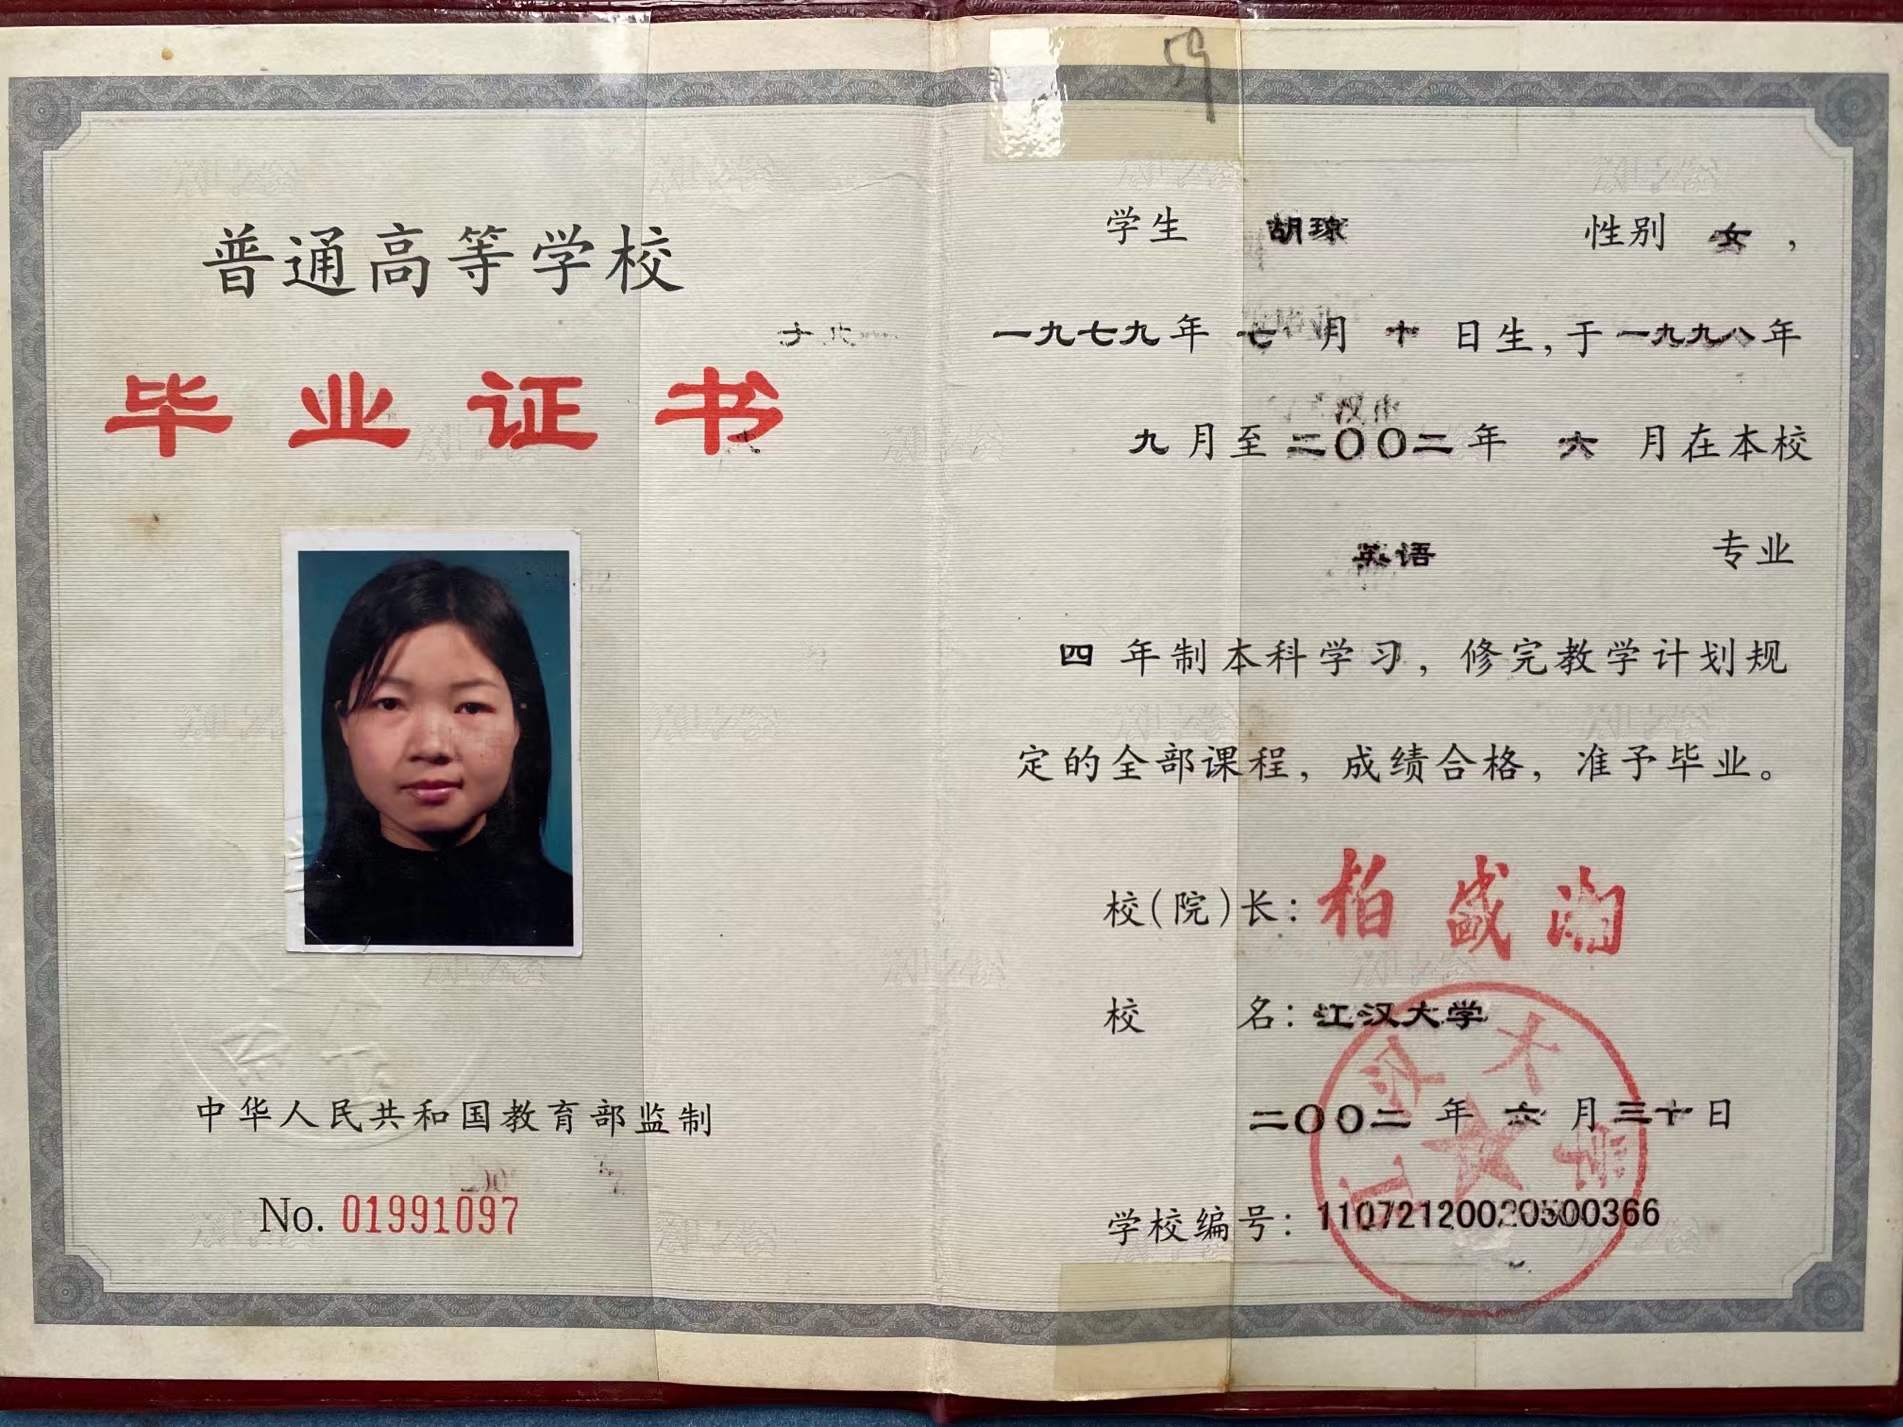 普通高等学校
毕业证书
中华人民共和国教育部监制
No. 01991097
59
学生 胡琼 性别 女，
一九七九年 七 月 十 日生，于一九九八年
九月至二〇〇二年 六 月在本校
英语 专业
四 年制本科学习，修完教学计划规
定的全部课程，成绩合格，准予毕业。
校(院)长：柏盛湘
校 名：江汉大学
江汉大学
二〇〇二年 六 月三十日
学校编号：11072120020500366